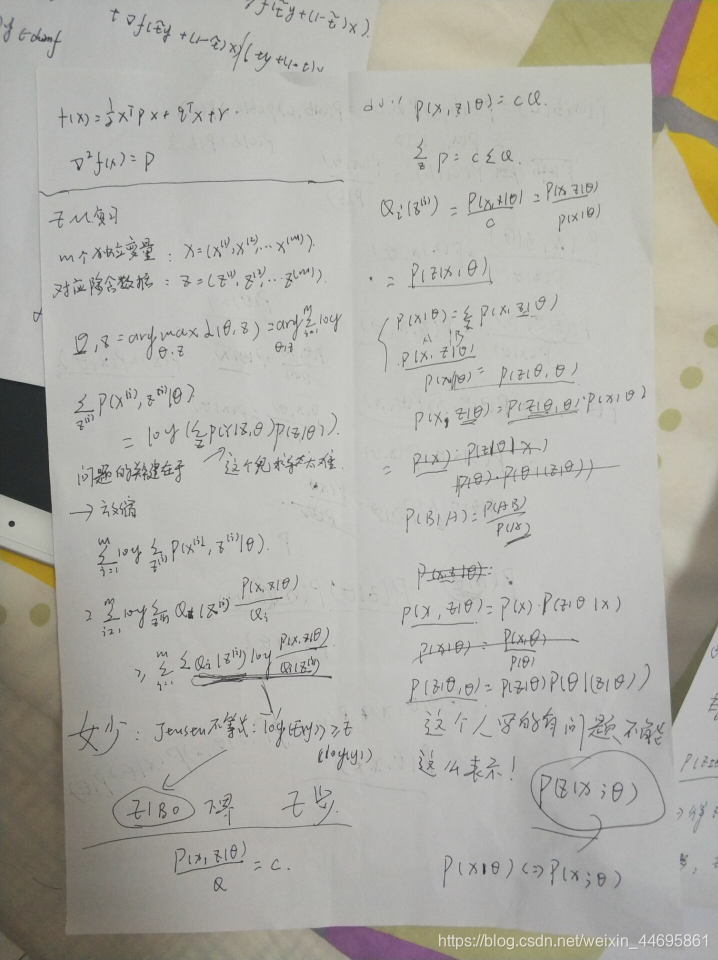 ∇f(t̃y + (1-t̃)x).
+ ∇f(t̃y + (1-t̃)x)
f(x) = ½xᵀPx + qᵀx + r.
∇²f(x) = P
EM复习
m个独立变量: X = (x⁽¹⁾, x⁽²⁾, … x⁽ᵐ⁾).
对应隐含数据: z = (z⁽¹⁾, z⁽²⁾, … z⁽ᵐ⁾)
θ, z = arg max_{θ,z} L(θ, z) = arg_{θ,z} Σᵢ₌₁ᵐ log
Σ_{z⁽ⁱ⁾} P(x⁽ⁱ⁾, z⁽ⁱ⁾|θ)
= log(Σ_z P(Y|z,θ)P(z|θ)).
问题的关键在于 这个纯求和太难
→ 放缩
Σᵢ₌₁ᵐ log Σ_{z⁽ⁱ⁾} P(x⁽ⁱ⁾, z⁽ⁱ⁾|θ).
= Σᵢ₌₁ᵐ log Σ_{z⁽ⁱ⁾} Qᵢ(z⁽ⁱ⁾) P(x,z|θ)/Qᵢ
≥ Σᵢ₌₁ᵐ Σ Qᵢ(z⁽ⁱ⁾) log P(x,z|θ)/Qᵢ(z⁽ⁱ⁾)
Jensen不等式: log(E(y)) ≥ E
(log(y))
ELBO 下界 E步.
P(x,z|θ)/Q = c.
P(x,z|θ) = cQ.
Σ_z P = cΣQ.
Qᵢ(z⁽ⁱ⁾) = P(x,z|θ)/c = P(x,z|θ)/P(x|θ)
= P(z|x,θ)
P(x|θ) = Σ_z P(x,z|θ)
A B
P(x,z|θ)/P(x|θ) = P(z|θ,θ)
P(x,z|θ) = P(z|θ,θ)·P(x|θ)
= P(x)·P(z|θ|x)
P(θ)·P(θ|(z|θ))
P(B|A) = P(AB)/P(A)
P(x,z|θ):
P(x,z|θ) = P(x)·P(z|θ|x)
P(x|θ) = P(x,θ)/P(θ)
P(z|θ,θ) = P(z|θ)P(θ|(z|θ))
这个人写的有问题 不能
这么表示!
P(z|x;θ)
P(x|θ) <=> P(x;θ)
https://blog.csdn.net/weixin_44695861